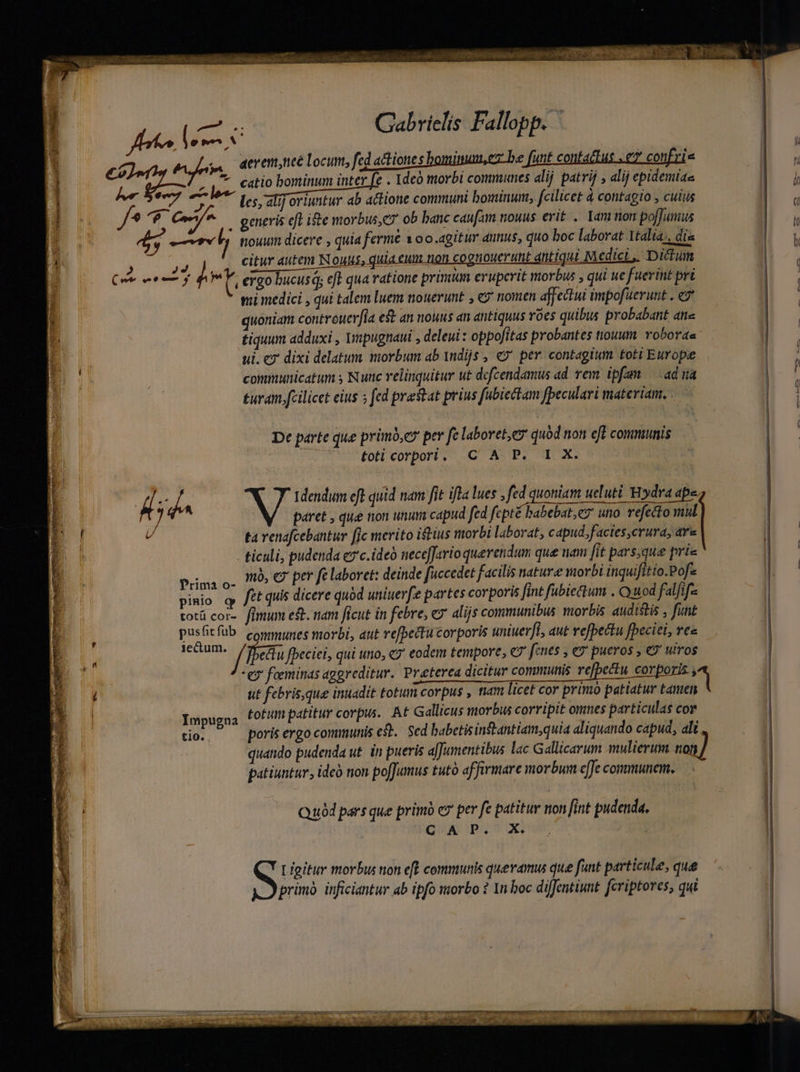 Gabrielis Fallopp.
aerem, neċ locum, sed actiones hominum, & hæ sunt contactus, & confri=
catio hominum inter se. Ideò morbi communes alij patrij, alij epidemia=
les, alij oriuntur ab actione communi hominum, scilicet à contagio, cuius
generis est iste morbus, & ob hanc causam nouus erit. Iam non possumus
nouum dicere, quia fermè 100. agitur annus, quo hoc laborat Italia, di=
citur autem Nouus, quia eum non cognouerunt antiqui Medici. Dictum
ergo hucusq; est qua ratione primùm eruperit morbus, qui ue fuerint pri
mi medici, qui talem luem nouerunt, & nomen affectui imposuerunt. &
quoniam controuersia est an nouus an antiquus rões quibus probabant an=
tiquum adduxi, Impugnaui, deleui: oppositas probantes nouum robora=
ui. & dixi delatum morbum ab Indijs, & per contagium toti Europæ
communicatum; Nunc relinquitur ut descendamus ad rem ipsam ad na
turam, scilicet eius; sed præstat prius subiectam speculari materiam.
De parte quæ primò, & per se laboret, & quòd non est communis
toti corpori. CAP. IX.
Hydra
VIdendum est quid nam sit ista lues, sed quoniam ueluti Hydra ap=
paret, quæ non unum capud sed septē habebat, & uno resecto mul
ta renascebantur sic merito istius morbi laborat, capud, facies, crura, ar=
ticuli, pudenda &c. ideò necessario quærendum quæ nam sit pars, quæ pri=
mò, & per se laboret: deinde succedet facilis naturæ morbi inquisitio. Pos=
Prima o-
pinio q
totū cor-
pus sit sub
iectum.
set quis dicere quòd uniuersæ partes corporis sint subiectum. Quod falsis=
simum est. nam sicut in febre, & alijs communibus morbis audistis, sunt
communes morbi, aut respectu corporis uniuersi, aut respectu speciei, re=
spectu speciei, qui uno, & eodem tempore, & senes, & pueros, & uiros
& fœminas aggreditur. Præterea dicitur communis respectu corporis
ut febris, quæ inuadit totum corpus, nam licet cor primò patiatur tamen
Impugna
tio.
totum patitur corpus. At Gallicus morbus corripit omnes particulas cor
poris ergo communis est. Sed habetis instantiam, quia aliquando capud, ali
quando pudenda ut in pueris assumentibus lac Gallicarum mulierum non
patiuntur, ideò non possumus tutò affirmare morbum esse communem.
Quòd pars quæ primò & per se patitur non sint pudenda.
CAP. X.
SI igitur morbus non est communis quæramus quæ sunt particulæ, quæ
primò inficiantur ab ipso morbo? In hoc dissentiunt scriptores, qui